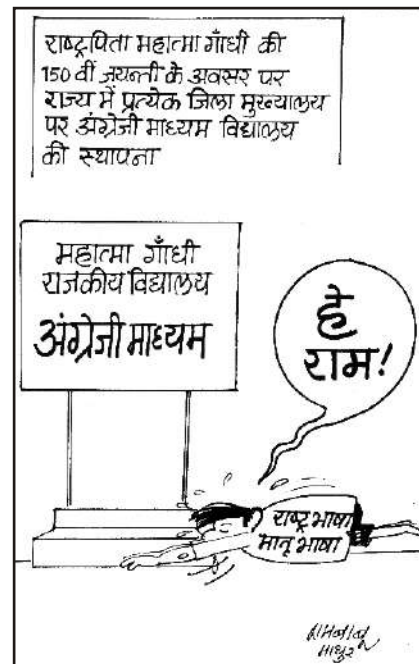 राष्ट्रपिता महात्मा गाँधी की
150 वीं जयन्ती के अवसर पर
राज्य में प्रत्येक जिला मुख्यालय
पर अंग्रेजी माध्यम विद्यालय
की स्थापना
महात्मा गाँधी
राजकीय विद्यालय
अंग्रेजी माध्यम
हे
राम!
राष्ट्र भाषा
मातृ भाषा
रामबाबू
माथुर